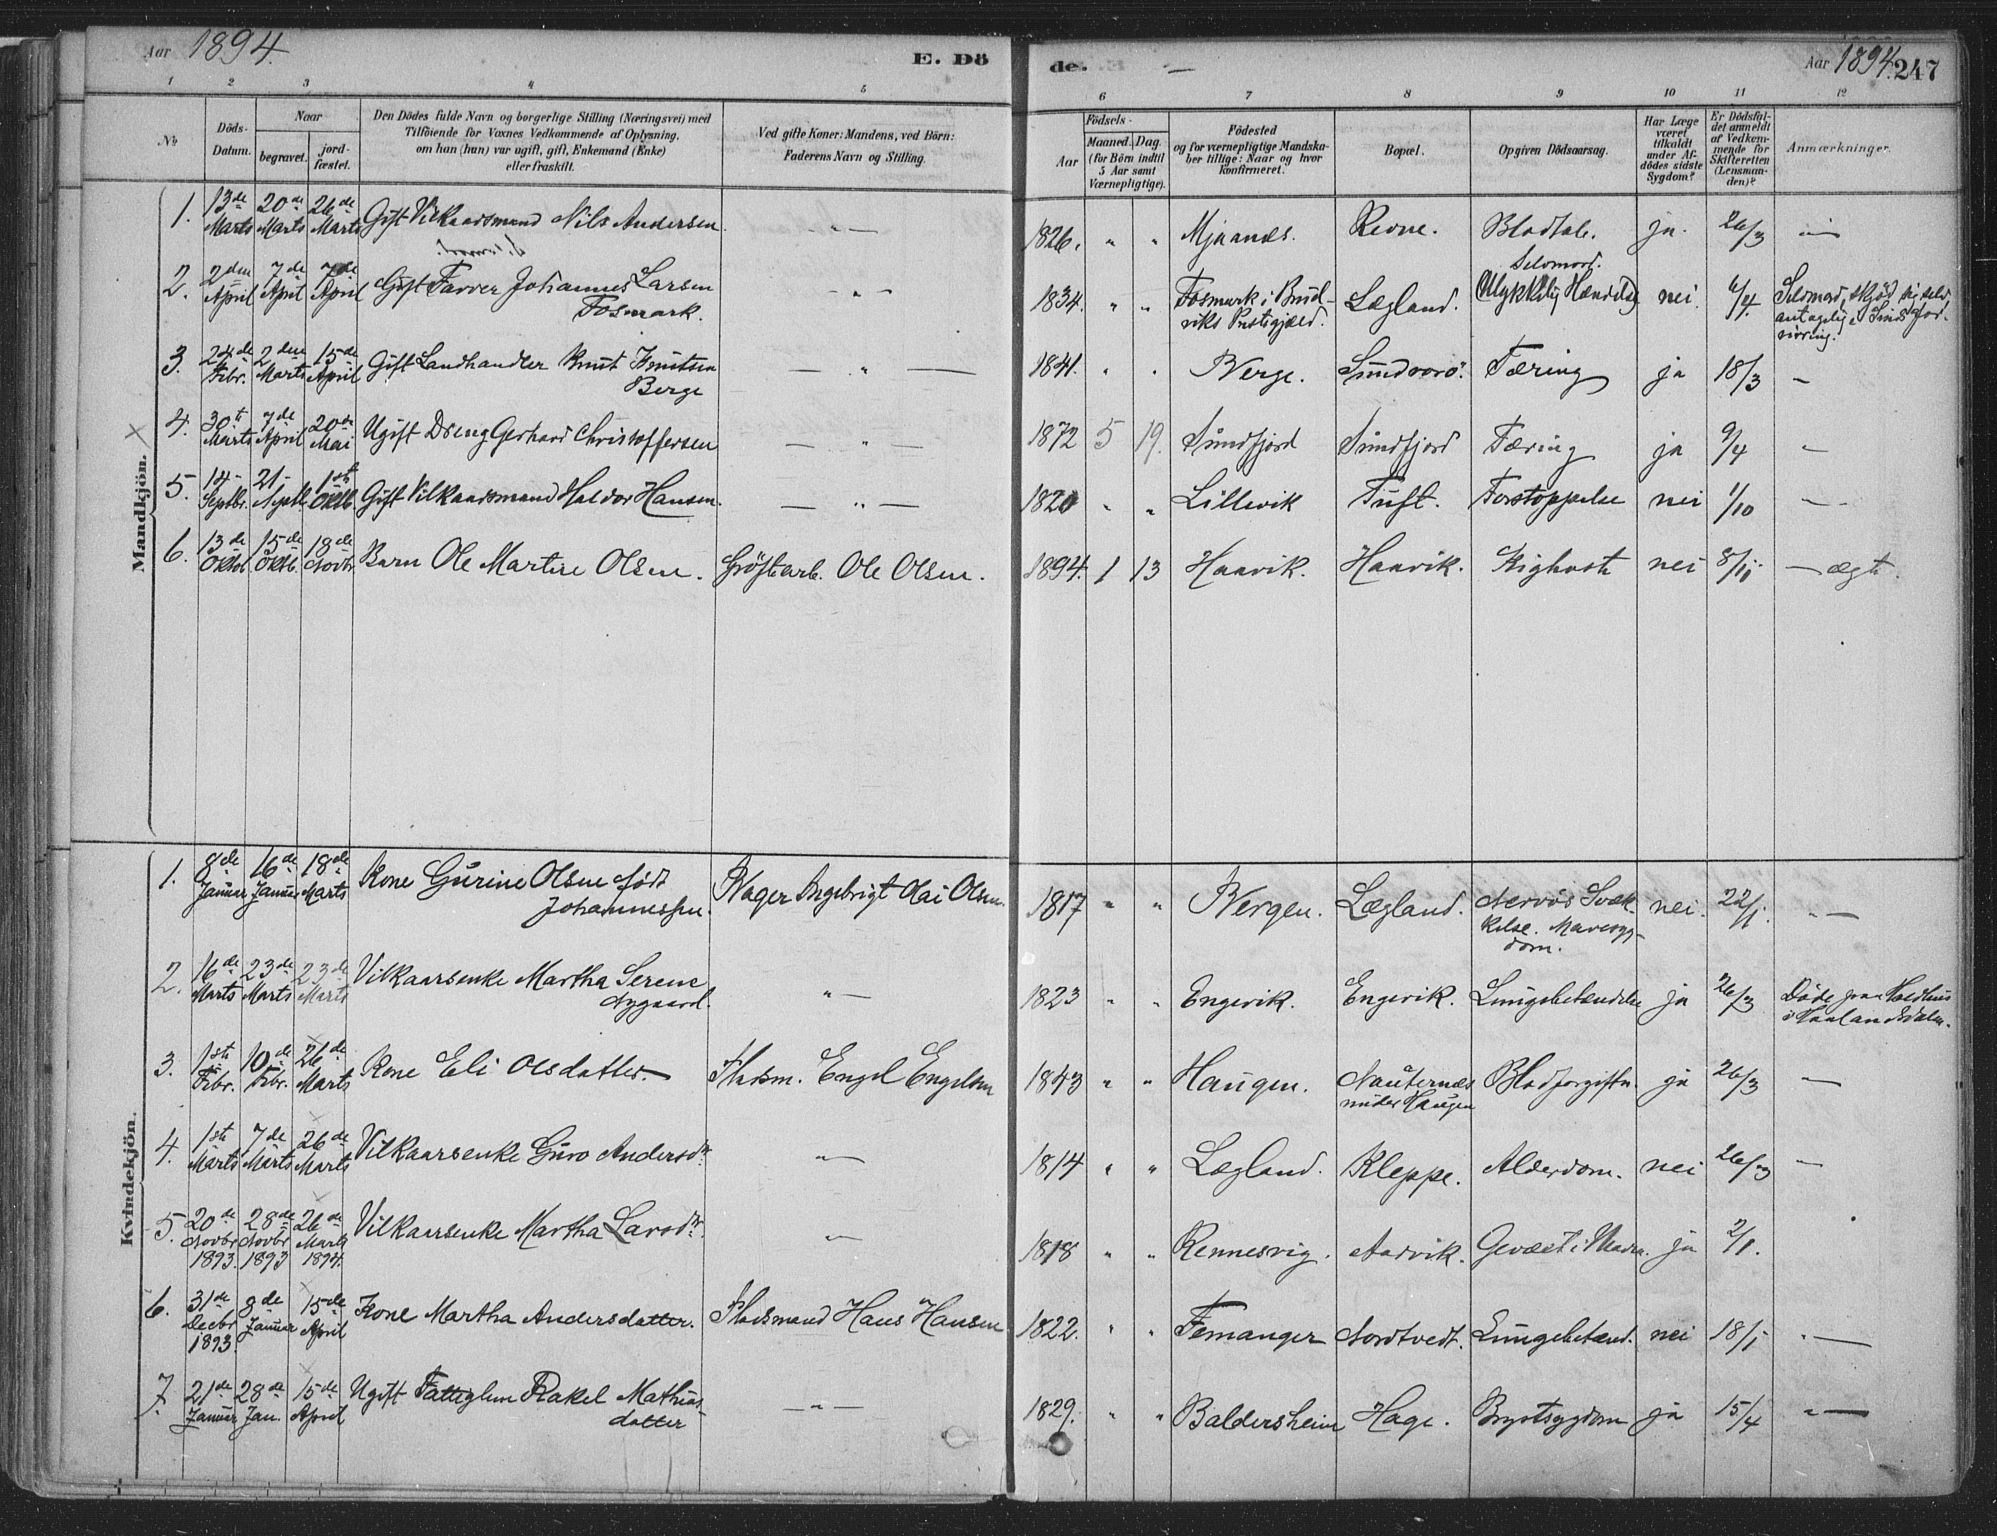 Aar 1894.
E. Dö
de.
Aar 1894.
247
1 2 3 4 5 6 7 8 9 10 11 12
No.
Döds-
Datum.
Naar
begravet.
jord-
fæstet.
Den Dödes fulde Navn og borgerlige Stilling (Næringsvei) med
Tilföiende for Voxnes Vedkommende af Oplysning,
om han (hun) var ugift, gift, Enkemand (Enke)
eller fraskilt.
Ved gifte Koner: Mandens, ved Börn:
Faderens Navn og Stilling.
Födsels-
Aar
Maaned. Dag.
(for Börn indtil
5 Aar samt
Værnepligtige).
Födested
og for værnepligtige Mandska-
ber tillige: Naar og hvor
konfirmeret.
Bopæl.
Opgiven Dödsaarsag.
Har Læge
været
tilkaldt
under Af-
dödes sidste
Sygdom?
Er Dödsfal-
det anmeldt
af Vedkom-
mende for
Skifteretten
(Lensman-
den)?
Anmærkninger.
Mandkjön.
1. 13de Marts 20de Marts 26de Marts Gift Vilkaarsmand Nils Andersen - " - 1826. " " Mjaanes. Revne. Blodtab. ja. 26/3 "
2. 2den April 7de April 7de April Gift Farver Johannes Larsen
Fosmark. - " - 1834. " " Fosmark i Brud-
viks Prestegjæld. Lægland. Selvmord.
Ulykkelig Hændelse nei 6/4. Selvmord, skjöd sig selv
antagelig i Sindsfor-
virring.
3. 24de Febr. 2den Marts 15de April Gift Landhandler Knut Knutsen
Berge - " - 1841. " " Berge. Sundvorö. Tæring ja 18/3 -
4. 30te Marts 7de April 20de Mai Ugift Dreng Gerhard Christoffersen - " - 1872 5 19. Sundfjord Sundfjord Tæring ja 9/4 -
5. 14- Septbr. 21- Septb. 1ste Oktb. Gift Vilkaarsmand Haldor Hansen. - " - 1820 " " Lillevik Tuft. Forstoppelse nei 1/10 -
6. 13de Oktbr. 15de Oktb. 18de Novbr. Barn Ole Martin Olsen. Gröftearb. Ole Olsen. 1894. 1 13 Haavik. Haavik. Kighoste nei 8/11 - ægte.
Kvindekjön.
1. 8de Januar 16de Januar 18de Marts Kone Gurine Olsen födt
Johannessen. Bager Ingebrigt Olai Olsen. 1817 " " Bergen. Lægland. Nervös Svæk-
kelse. Mavesyg-
dom. nei. 22/1. " -
2. 16de Marts 23de Marts 23de Marts Vilkaarsenke Martha Serene
Nygaard. " - 1823 " " Engevik. Engevik. Lungebetændelse ja 26/3
3. 1ste Febr. 10de Febr. 26de Marts Kone Eli Olsdatter. Pladsm. Engel Engelsen 1843 " " Haugen. Nauternæs
under Haugen Blodforgiftn. ja 26/3 -
4. 1ste Marts 7de Marts 26de Marts Vilkaarsenke Guro Andersdr. " - 1814 " " Lægland. Kleppe. Alderdom. nei 26/3 -
5. 20de Novbr. 1893. 28de Novbr. 1893 26de Marts 1894. Vilkaarsenke Martha Larsdr. " - 1818 " " Rennesvig. Aarvik. Gevæxt i Maven. ja 2/1.
6. 31de Decbr. 1893. 8de Januar 15de April Kone Martha Andersdatter. Pladsmand Hans Hansen 1822. " " Femanger Nordtvedt. Lungebetænd. nei 18/1 " -
7. 21de Januar 28de Jan. 15de April Ugift Fattiglem Rakel Mathias-
datter - " - 1829. " " Baldersheim Hage. Brystsygdom ja 15/4 " -